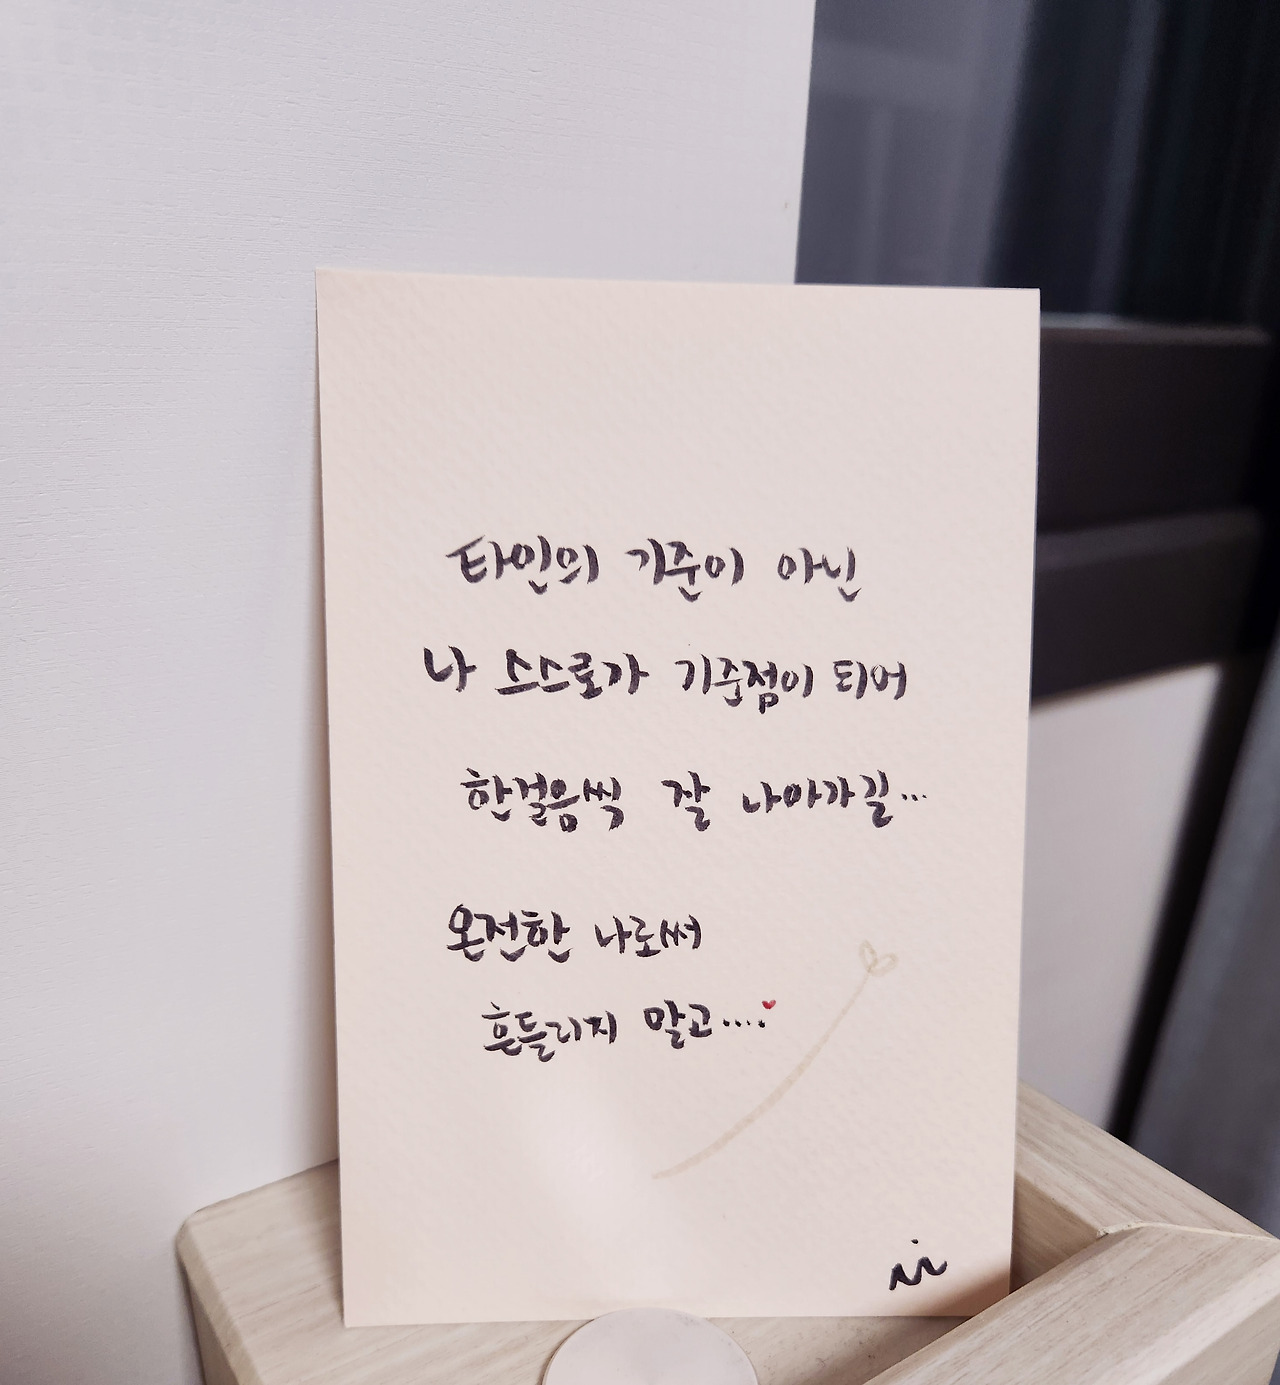 타인의 기준이 아닌
나 스스로가 기준점이 되어
한걸음씩 잘 나아가길...
온전한 나로써
흔들리지 말고....